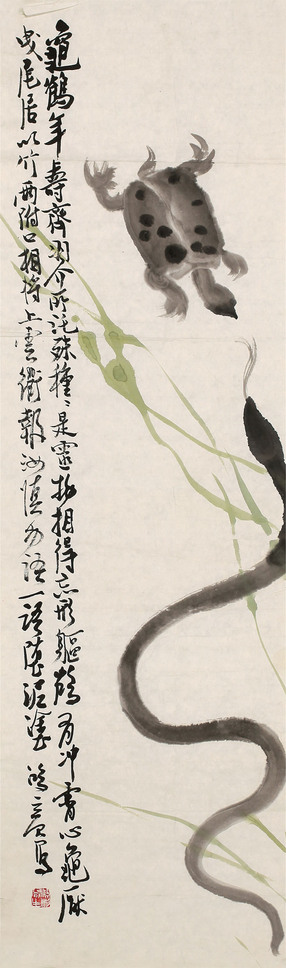 龜鶴年壽齊羽介所託殊種種是靈物相得忘形軀鶴有冲霄心龜厭
曳尾居以竹兩附口相將上雲衢報汝慎勿語一語墮泥塗